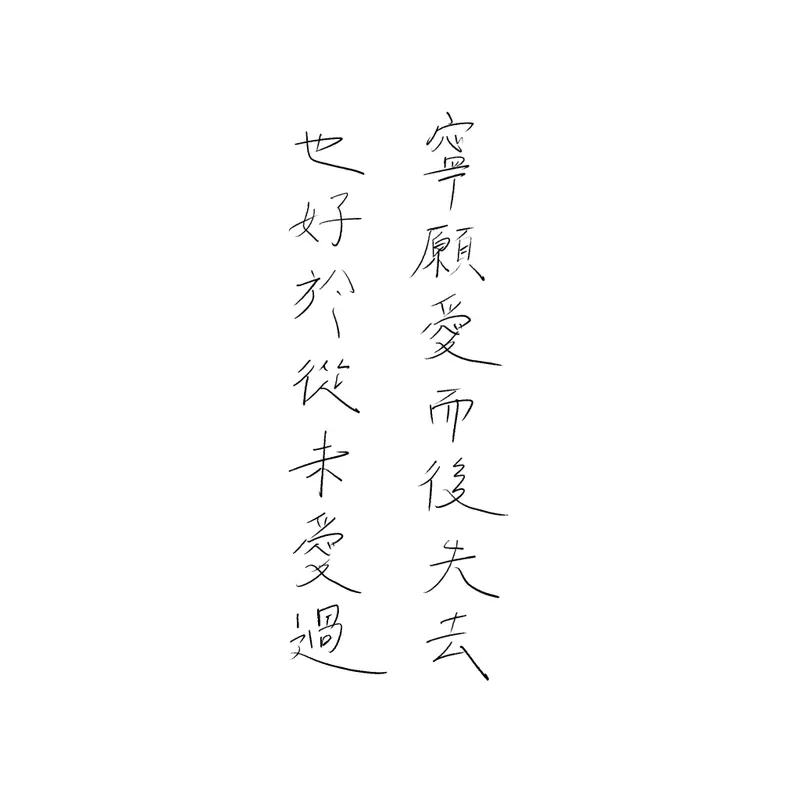 寧願愛而後失去
也好於從未愛過